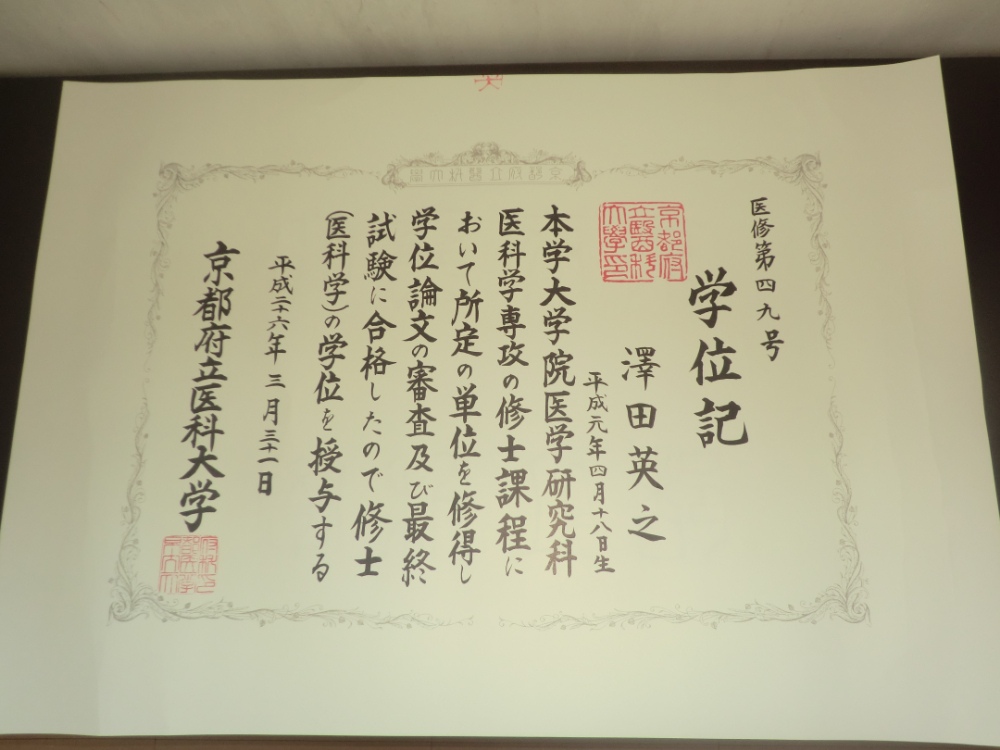 医修第四九号
学位記
澤田英之
平成元年四月十八日生
本学大学院医学研究科
医科学専攻の修士課程に
おいて所定の単位を修得し
学位論文の審査及び最終
試験に合格したので修士
(医科学)の学位を授与する
平成二十六年三月三十一日
京都府立医科大学
京都府
立醫科
大學印